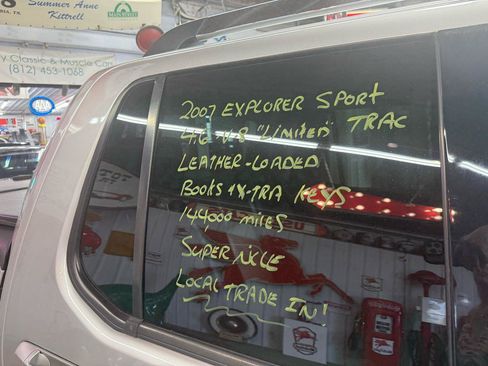 Summer Anne
Kettrell
Classic & Muscle Cars
(812) 453-1068
2007 EXPLORER SPORT
4.6 V.8 "LIMITED" TRAC
LEATHER-LOADED
BOOKS + X-TRA KEYS
144,000 MILES
SUPER NICE
LOCAL TRADE IN!